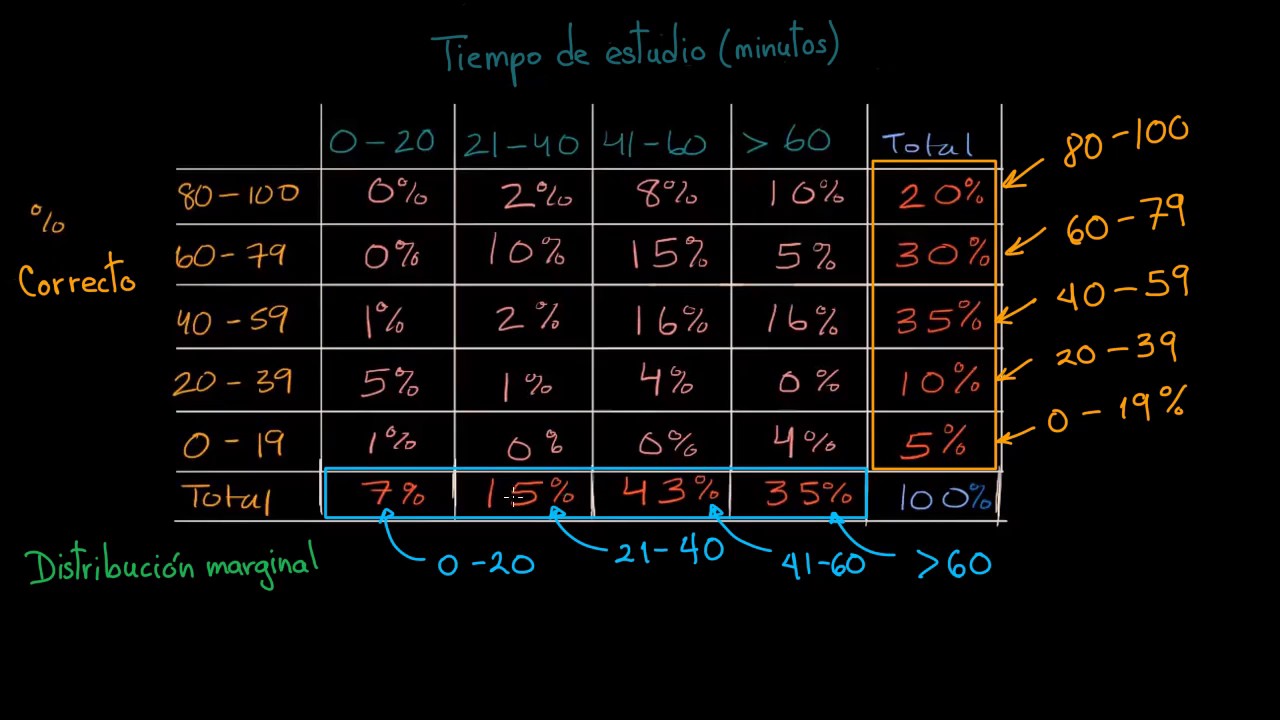 Tiempo de estudio (minutos)
0-20 21-40 41-60 > 60 Total
80-100 0% 2% 8% 10% 20% 80-100
60-79 0% 10% 15% 5% 30% 60-79
40-59 1% 2% 16% 16% 35% 40-59
20-39 5% 1% 4% 0% 10% 20-39
0-19 1% 0% 0% 4% 5% 0-19%
Total 7% 15% 43% 35% 100%
%
Correcto
0-20 21-40 41-60 >60
Distribución marginal